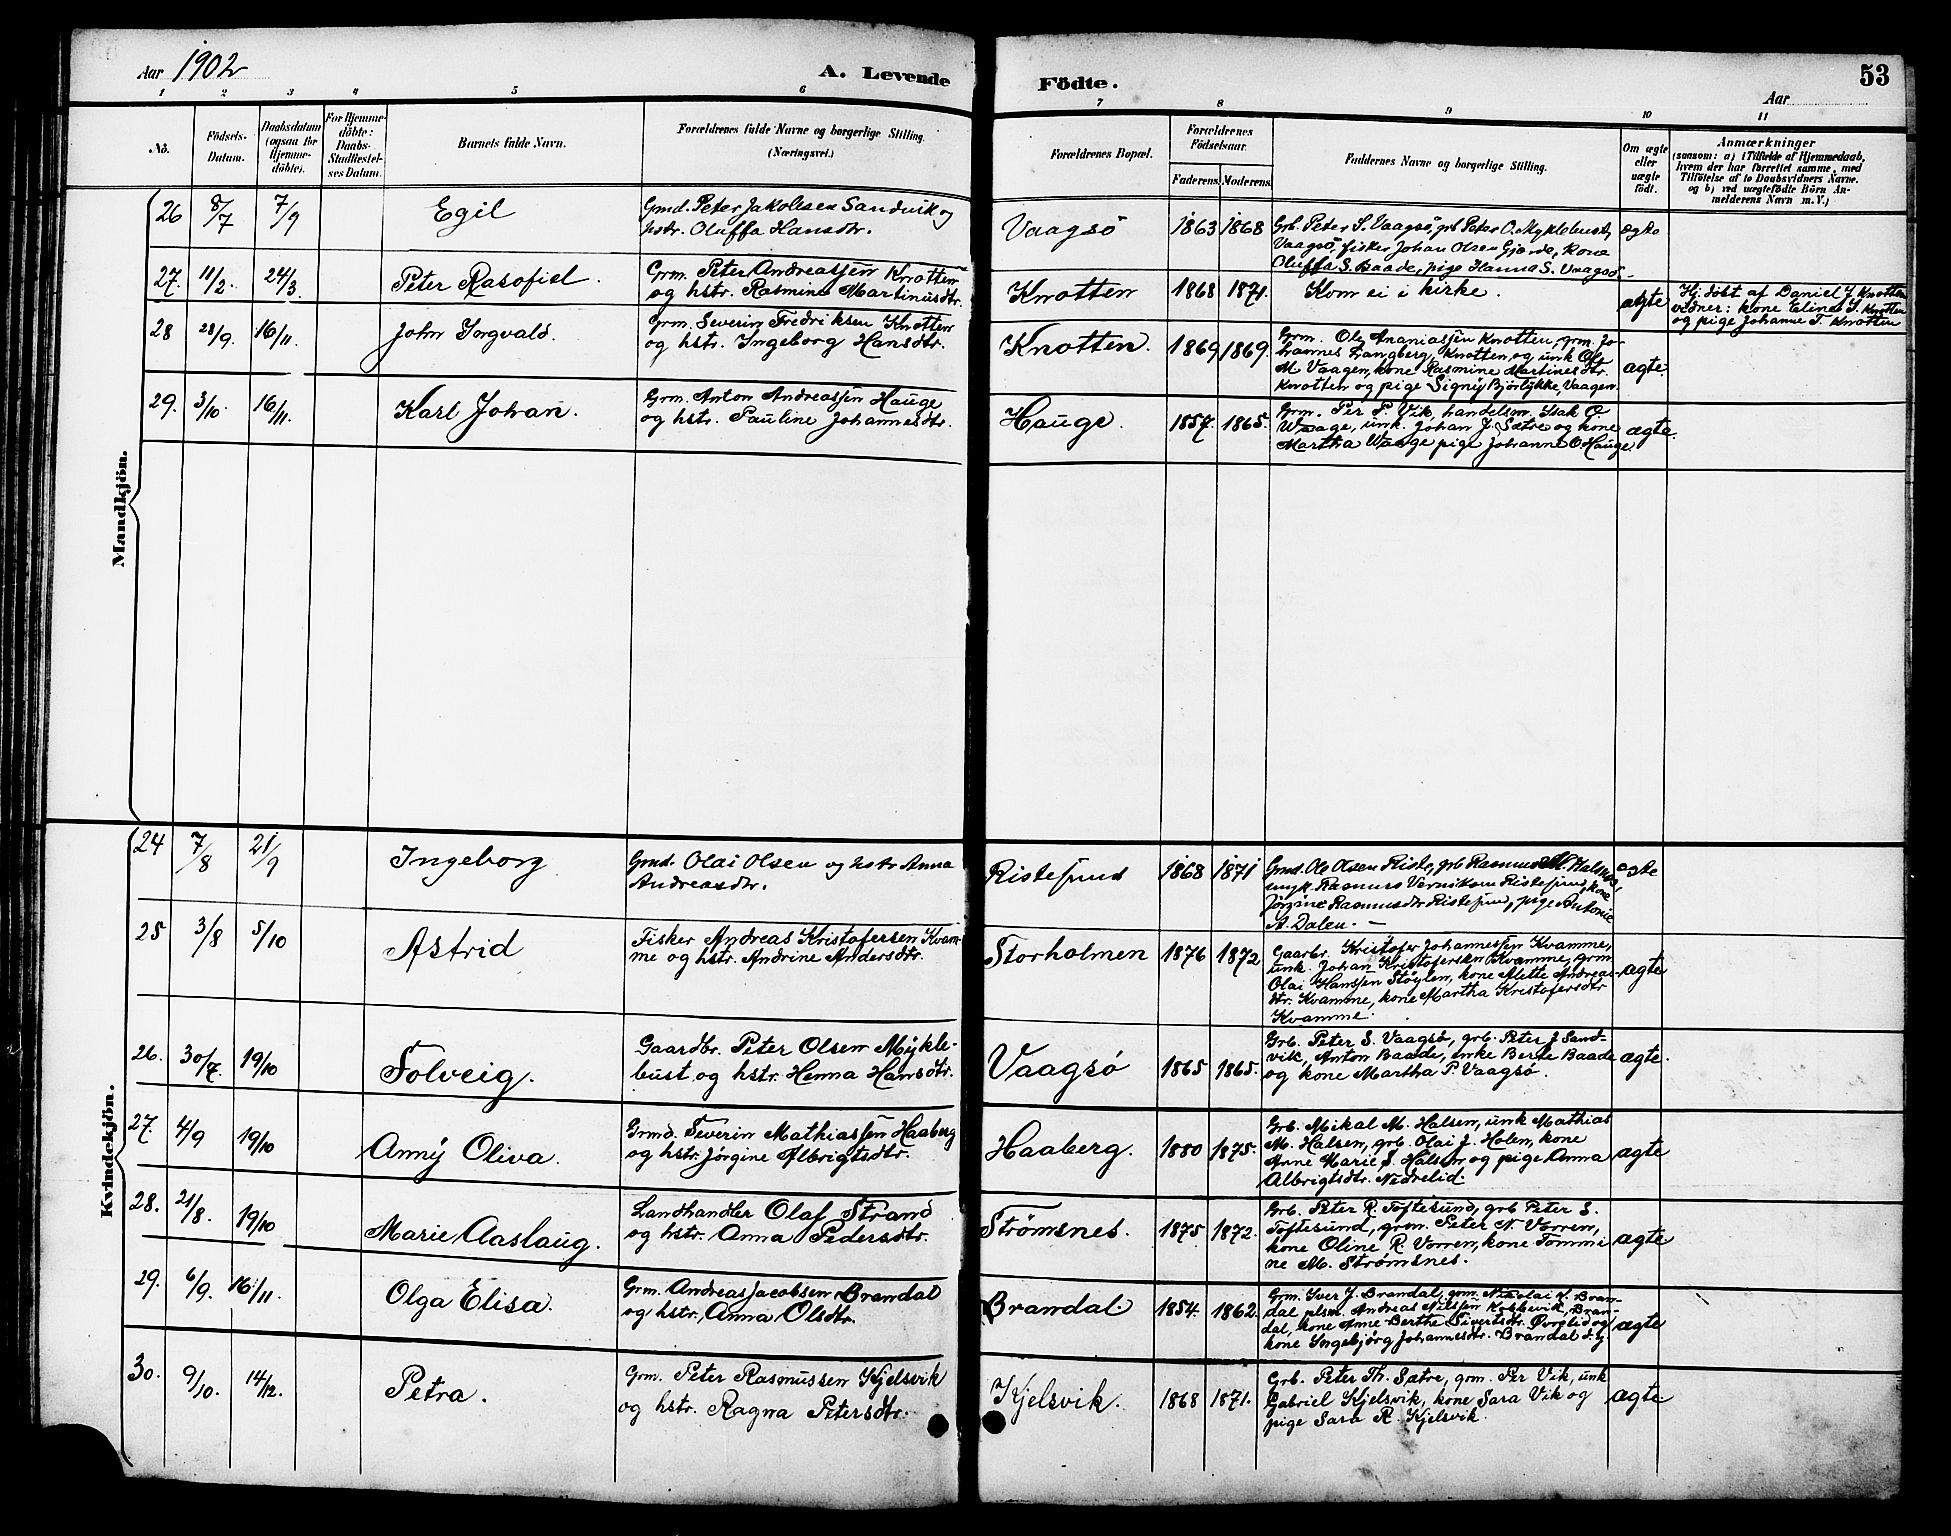 Aar 1902
A. Levende
Födte.
53
Aar
1 2 3 4 5 6 7 8 9 10 11
No.
Födsels-
Datum.
Daabsdatum
(ogsaa for
Hjemme-
döbte).
For Hjemme-
döbte:
Daabs-
Stadfæstel-
ses Datum.
Barnets fulde Navn.
Forældrenes fulde Navne og borgerlige Stilling
(Næringsvei.)
Forældrenes Bopæl.
Forældrenes
Födselsaar.
Faderens. Moderens.
Faddernes Navne og borgerlige Stilling.
Om ægte
eller
uægte
födt.
Anmærkninger
(saasom: a) i Tilfælde af Hjemmedaab,
hvem der har forrettet samme, med
Tilföielse af to Daabsvidners Navne.
og b) ved uægtefödte Börn An-
melderens Navn m. V.)
Mandkjön.
26 8/7 7/9 Egil
Gmd. Peter Jakobsen Sandvik og
hstr. Oluffa Hansdtr.
Vaagsö 1863 1868
Grb. Peter S. Vaagsö, grb Peter O. Myklebust,
Vaagsö, fisker Johan Olsen Gjerde, kone
Oluffa S. Baade, pige Hanna S. Vaagsö
ægte
27. 11/2. 24/3 Peter Rasofiel.
Grm. Peter Andreassen Knotten
og hstr. Rasmine Martinusdtr.
Knotten 1868 1871.
Kom ei i kirke.
ægte
Hj. döbt af Daniel J. Knotten
vidner: kone Eline S. Knotten
og pige Johanne T. Knotten
28 28/9. 16/11. John Ingvald.
Grm. Severin Fredriksen Knotten
og hstr. Ingeborg Hansdtr.
Knotten. 1869 1869.
Grm. Ole Ananiassen Knotten, grm. Jo-
hannes Langberg, Knotten, og unk Ole
M. Vaagen, kone Rasmine Martinesdtr.
Knotten og pige Signy Björlykke, Vaagen.
ægte.
29. 3/10. 16/11. Karl Johan.
Grm. Anton Andreassen Hauge
og hstr. Pauline Johannesdtr.
Hauge. 1857. 1865.
Grm. Per P. Vik, handelsm. Isak O.
Waage, unk. Johan J. Sætre og kone
Martha Waage pige Johanne O. Hauge.
ægte.
Kvindekjön.
24 7/8 21/9 Ingeborg
Gmd. Olai Olsen og hstr Anna
Andreasdtr.
Ristesund 1868 1871
Gmd. Ole Olsen Riste, grb Rasmus M. Halsnes,
ungk. Rasmus Ristesund, kone
Jörgine Rasmusdtr Ristesund, pige Antonie
A. Dalen.
ægte
25 3/8 5/10 Astrid
Fisker Andreas Kristofersen Kvam-
me og hstr. Andrine Andersdtr.
Storholmen 1876 1872
Gaarbr. Kristofer Johannessen Kvamme,
unk. Johan Kristofersen Kvamme, grm.
Olai Hanssen Støylen, kone Alette Andreas-
dtr. Kvamme, kone Martha Kristofersdtr
Kvamme.
ægte
26. 30/7. 19/10 Solveig.
Gaardbr. Peter Olsen Mykle-
bust og hstr. Hanna Hansdtr.
Vaagsø 1865 1865.
Grb. Peter S. Vaagsø, grb. Peter J Sand-
vik, Anton Baade, enke Berte Baade
og kone Martha P. Vaagsø.
ægte.
27. 4/9 19/10 Anny Oliva.
Grmd. Severin Mathiassen Haaberg
og hstr. Jörgine Albrigtsdtr.
Haaberg. 1880 1875.
Grb. Mikal M. Halsen, unk Mathias
M. Halsen, grb. Olai J. Holen, kone
Anne Marie S. Halsen og pige Anna
Albrigtsdtr. Nedrelid.
ægte
28. 21/8. 19/10 Marie Aaslaug.
Landhandler Olaf Strand
og hstr. Anna Pedersdtr.
Strømsnes. 1875 1872.
Grb. Peter R. Toftesund, grb Peter S.
Toftesund, grm. Peter N. Vorren,
kone Oline R. Vorren, kone Tommi
ne M. Strømsnes.
ægte
29. 6/9. 16/11. Olga Elisa.
Grm. Andreas Jacobsen Brandal
og hstr. Anna Olsdtr.
Brandal. 1854. 1862.
Grm. Iver J. Brandal, grm. Nikolai K. Bran-
dal plsm. Andreas Nilssen Kobbevik, Bran-
dal, kone Anne Berthe Sivertsdtr. Øvrelid og
kone Ingebjørg Johannesdtr. Brandal d.y.
ægte
30. 9/10. 14/12. Petra.
Grm. Peter Rasmussen Kjelsvik
og hstr. Ragna Petersdtr.
Kjelsvik. 1868 1871.
Grb. Peter Th. Sætre, grm. Per Vik, unk
Gabriel Kjelsvik, kone Sara Vik og
pige Sara R. Kjelsvik.
ægte.